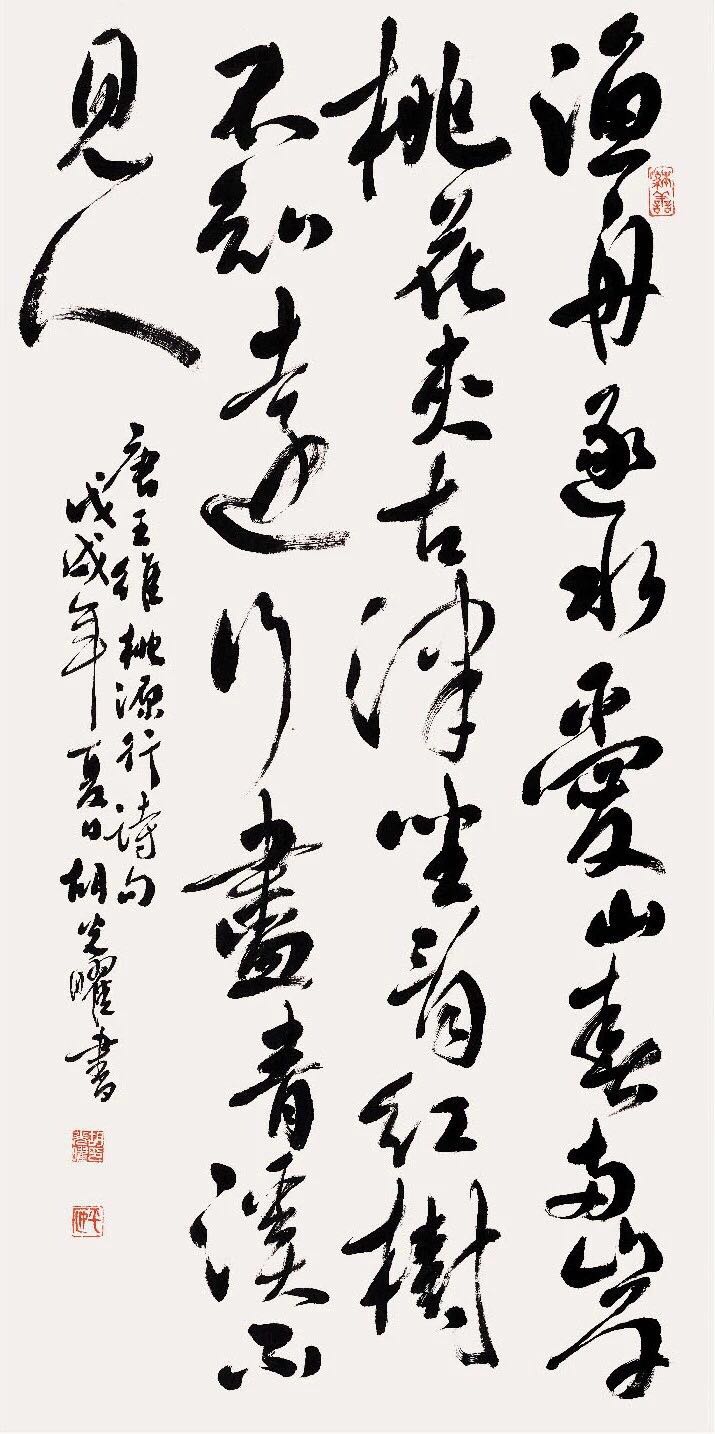 漁舟逐水愛山春兩岸
桃花夾古津坐看紅樹
不知遠行盡青溪不
見人
唐王維桃源行詩句
戊戌年夏日胡光曜書